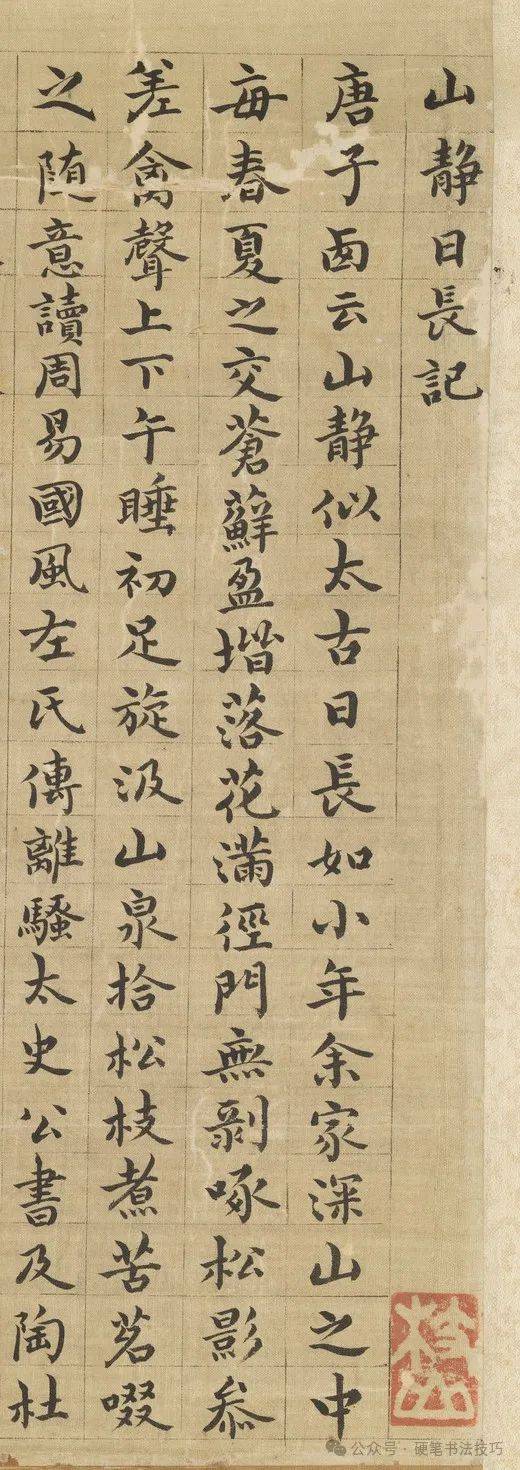 山靜日長記
唐子西云山静似太古日長如小年余家深山之中
每春夏之交蒼蘚盈堦落花滿徑門無剥啄松影叅
差禽聲上下午睡初足旋汲山泉拾松枝煮苦茗啜
之随意讀周易國風左氏傳離騷太史公書及陶杜
公众号·硬笔书法技巧